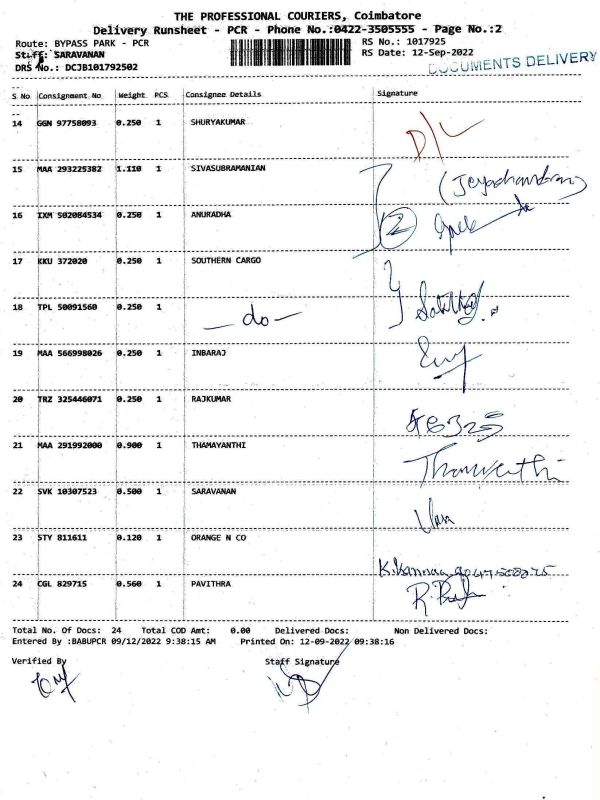 THE PROFESSIONAL COURIERS, Coimbatore
Delivery Runsheet - PCR - Phone No.:0422-3505555 - Page No.:2
Route: BYPASS PARK - PCR
RS No.: 1017925
Staff: SARAVANAN
RS Date: 12-Sep-2022
DRS No.: DCJB101792502
DOCUMENTS DELIVERY
S No Consignment No Weight PCS Consignee Details Signature
14 GGN 97758093 0.250 1 SHURYAKUMAR D/L
15 MAA 293225382 1.110 1 SIVASUBRAMANIAN (Jeyachandran)
16 IXM 502084534 0.250 1 ANURADHA 2
17 KKU 372020 0.250 1 SOUTHERN CARGO
18 TPL 50091560 0.250 1 — do —
19 MAA 566998026 0.250 1 INBARAJ
20 TRZ 325446071 0.250 1 RAJKUMAR
21 MAA 291992000 0.900 1 THAMAYANTHI
22 SVK 10307523 0.500 1 SARAVANAN
23 STY 811611 0.120 1 ORANGE N CO
24 CGL 829715 0.560 1 PAVITHRA
Total No. Of Docs: 24 Total COD Amt: 0.00 Delivered Docs: Non Delivered Docs:
Entered By :BABUPCR 09/12/2022 9:38:15 AM Printed On: 12-09-2022 09:38:16
Verified By Staff Signature